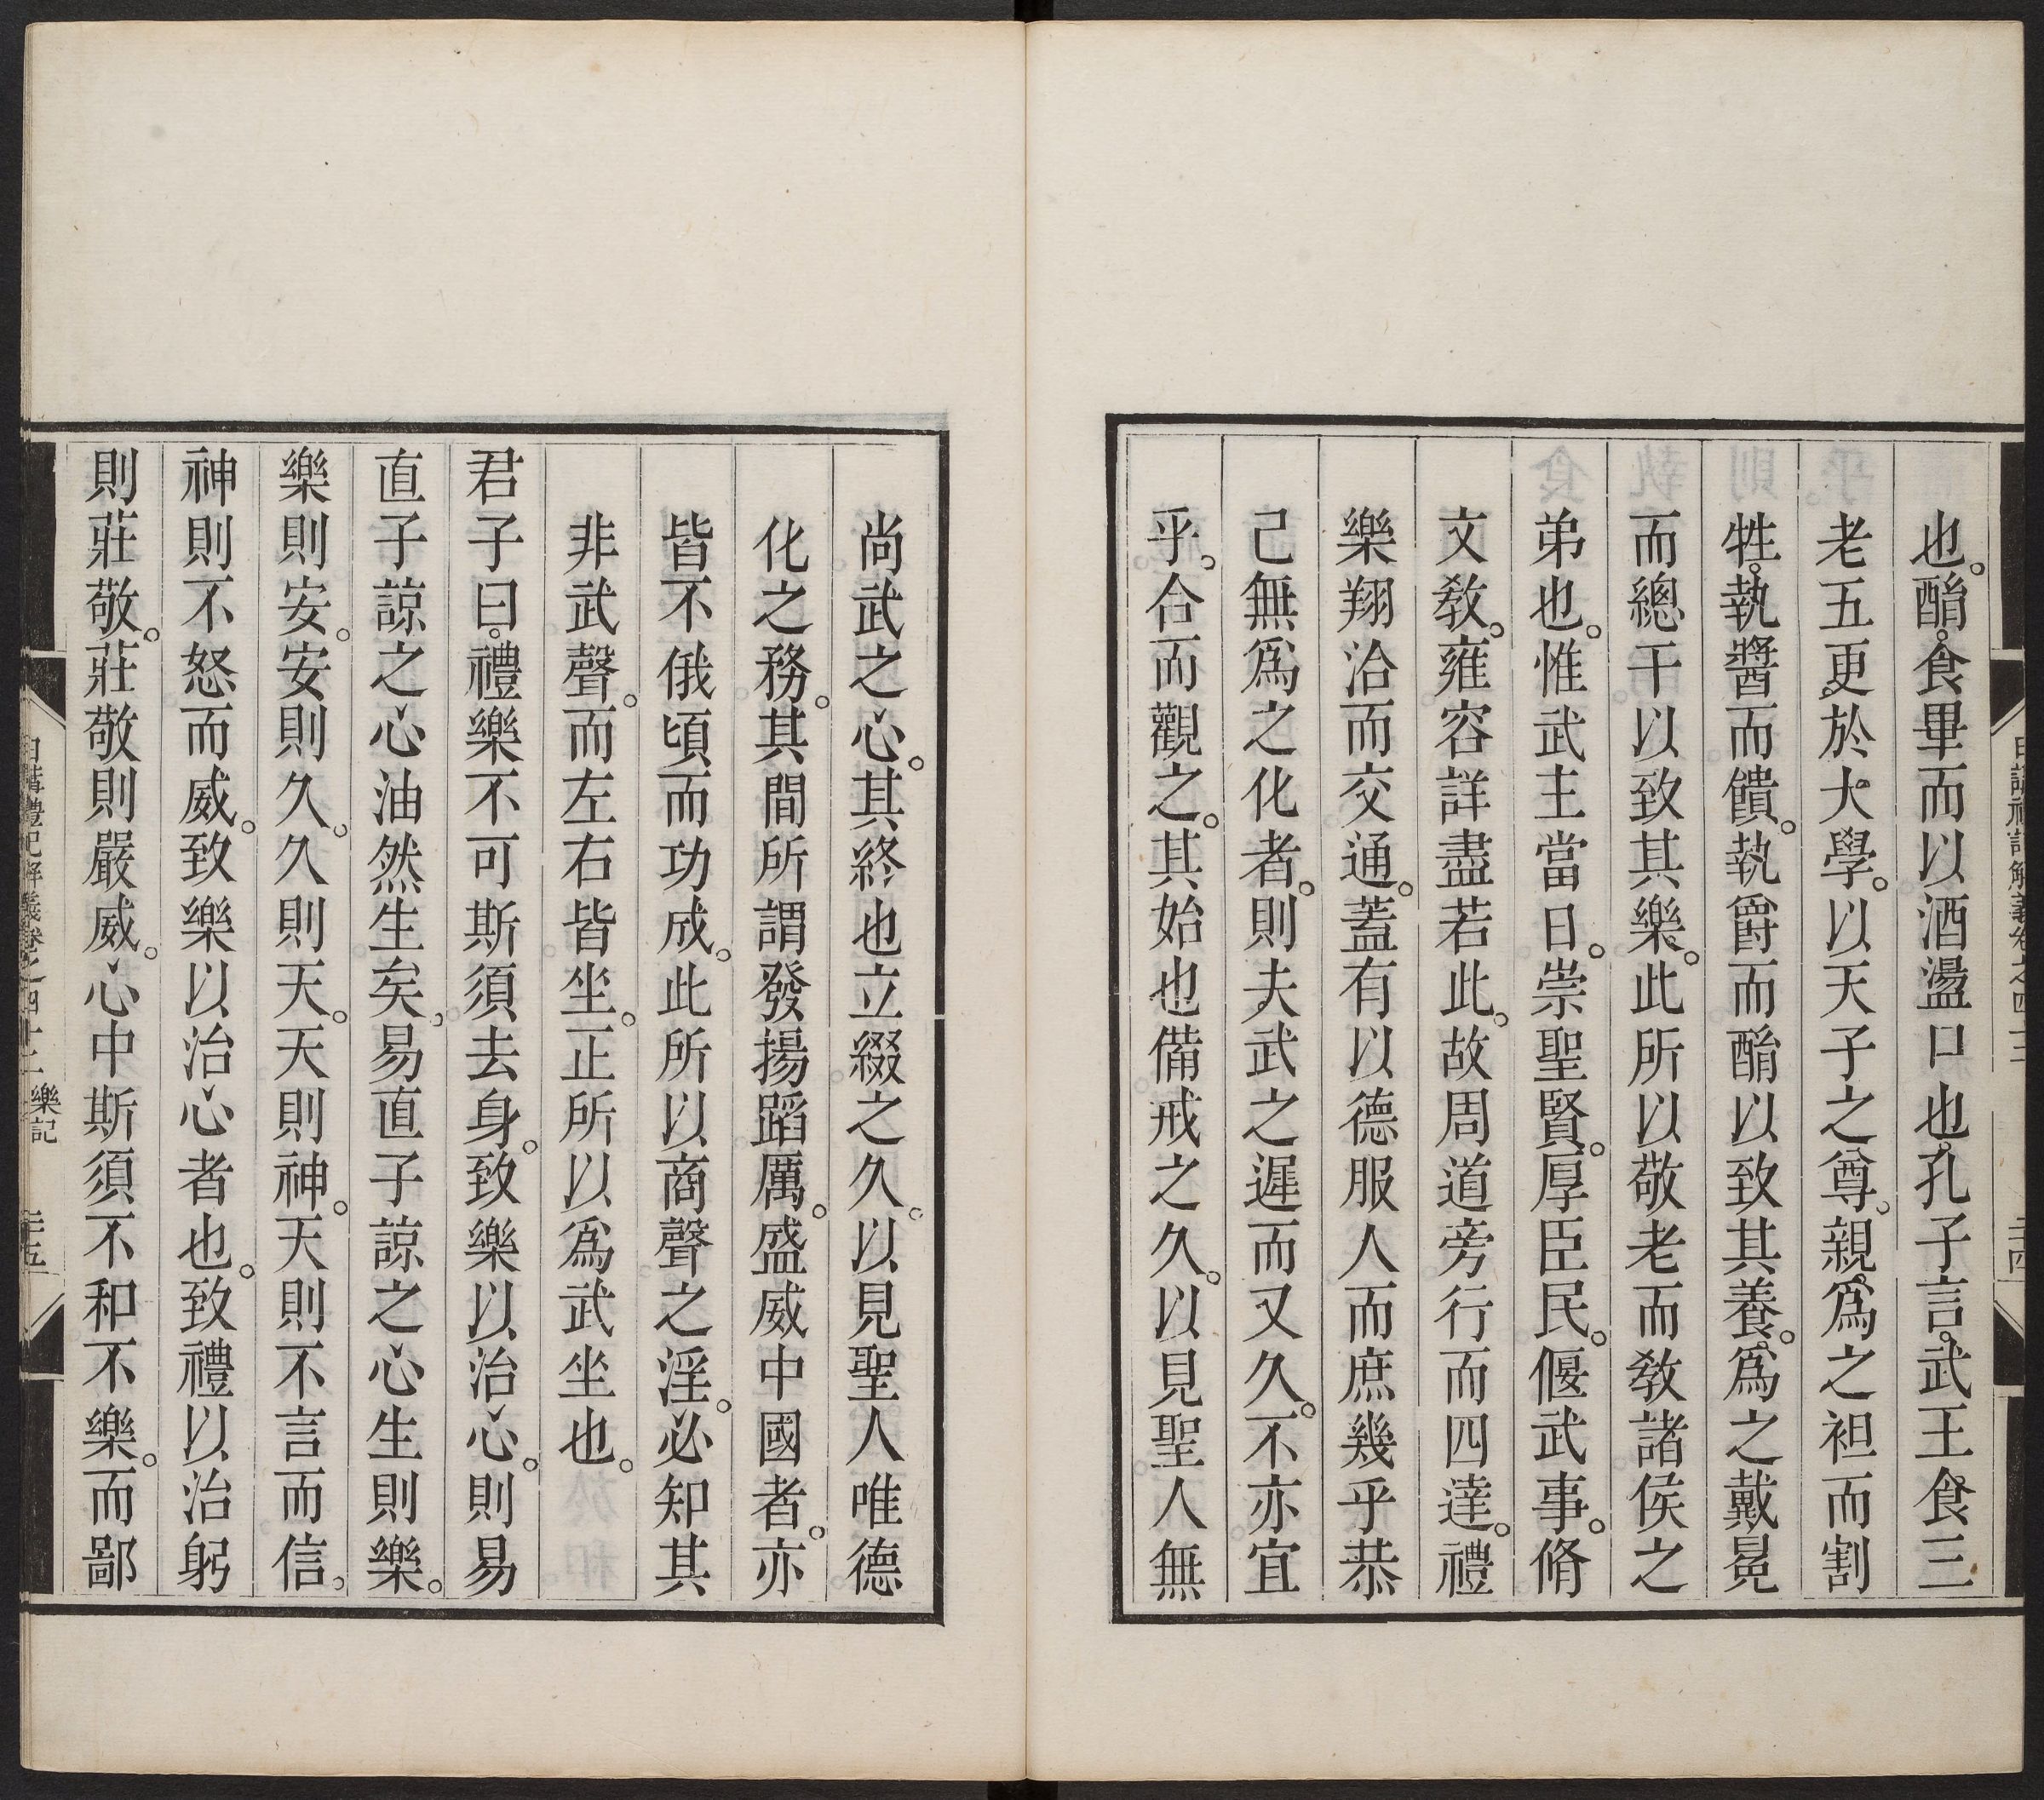 也。酳。食畢而以酒盪口也。孔子言。武王食三
老五更。於大學。以天子之尊。親。爲之袒而割
牲。執醬而饋。執爵而酳以致其養。爲之戴冕
而總干以致其樂。此所以敬老而教諸侯之
弟也。惟武主當日。崇聖賢。厚臣民。偃武事。脩
文教。雍容詳盡若此。故周道旁行而四達。禮
樂翔洽而交通。蓋有以德服人而庶幾乎恭
己無爲之化者。則夫武之遲而又久。不亦宜
乎。合而觀之。其始也備戒之久。以見聖人無
日講禮記解義卷之四十二
二十四
尚武之心。其終也立綴之久。以見聖人唯德
化之務。其間所謂發揚蹈厲。盛威中國者。亦
皆不俄頃而功成。此所以商聲之淫。必知其
非武聲。而左右皆坐。正所以爲武坐也。
君子曰。禮樂不可斯須去身。致樂以治心。則易
直子諒之心油然生矣。易直子諒之心生則樂。
樂則安。安則久。久則天。天則神。天則不言而信。
神則不怒而威。致樂以治心者也。致禮以治躬
則莊敬。莊敬則嚴威。心中斯須不和不樂。而鄙
日講禮記解義卷之四十二 樂記
二十五